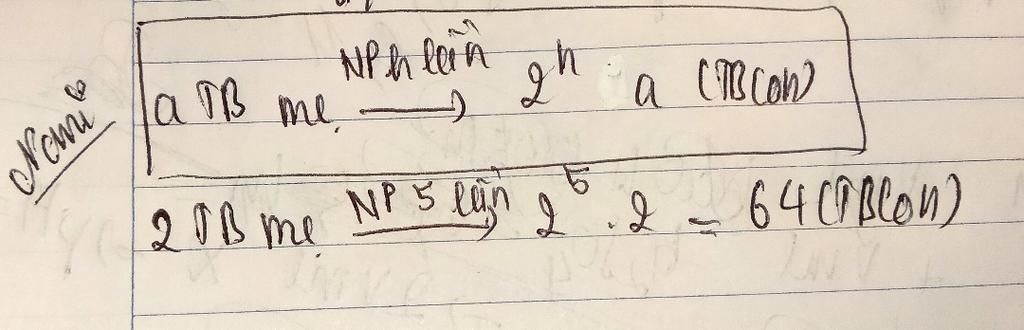 Nami
a TB mẹ NP n lần → 2ⁿ . a (TB con)
2 TB mẹ NP 5 lần → 2⁵ . 2 = 64 (TB con)